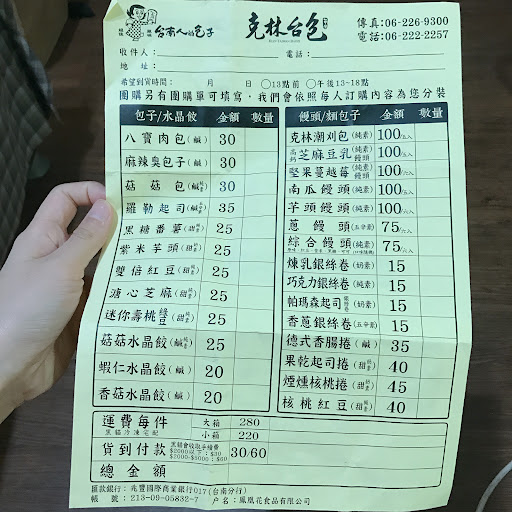 台南人的包子
克林台包
傳真:06-226-9300
電話:06-222-2257
收件人:
電話:
地址:
希望到貨時間: 月 日 ○13點前 ○午後13~18點
團購另有團購單可填寫,我們會依照每人訂購內容為您分裝
包子/水晶餃 金額 數量
八寶肉包(鹹) 30
麻辣臭包子(鹹) 30
菇菇包(鹹) 30
羅勒起司 35
黑糖番薯(甜) 25
紫米芋頭(甜) 25
雙倍紅豆(甜) 25
溏心芝麻(甜) 25
迷你壽桃(甜) 25
菇菇水晶餃 25
蝦仁水晶餃(鹹) 20
香菇水晶餃(鹹) 20
饅頭/麵包子 金額 數量
克林潮刈包(純素) 100/5入
芝麻豆乳(純素饅頭) 100
堅果蔓越莓(純素饅頭) 100
南瓜饅頭(純素) 100
芋頭饅頭(純素) 100
蔥饅頭(五辛素) 75
綜合饅頭(純素) 75
煉乳銀絲卷(奶素) 15
巧克力銀絲卷(純素) 15
帕瑪森起司(奶素) 15
香蔥銀絲卷(五辛素) 15
德式香腸捲(鹹) 35
果乾起司捲(甜) 40
煙燻核桃捲(鹹) 45
核桃紅豆(甜) 40
運費每件 大箱 280
黑貓冷凍宅配 小箱 220
貨到付款 黑貓會收取手續費 30/60
$2000以下:$30
$2000-$5000:$60
總金額
匯款銀行:兆豐國際商業銀行017(台南分行)
帳號:213-09-05832-7 戶名:鳳凰花食品有限公司